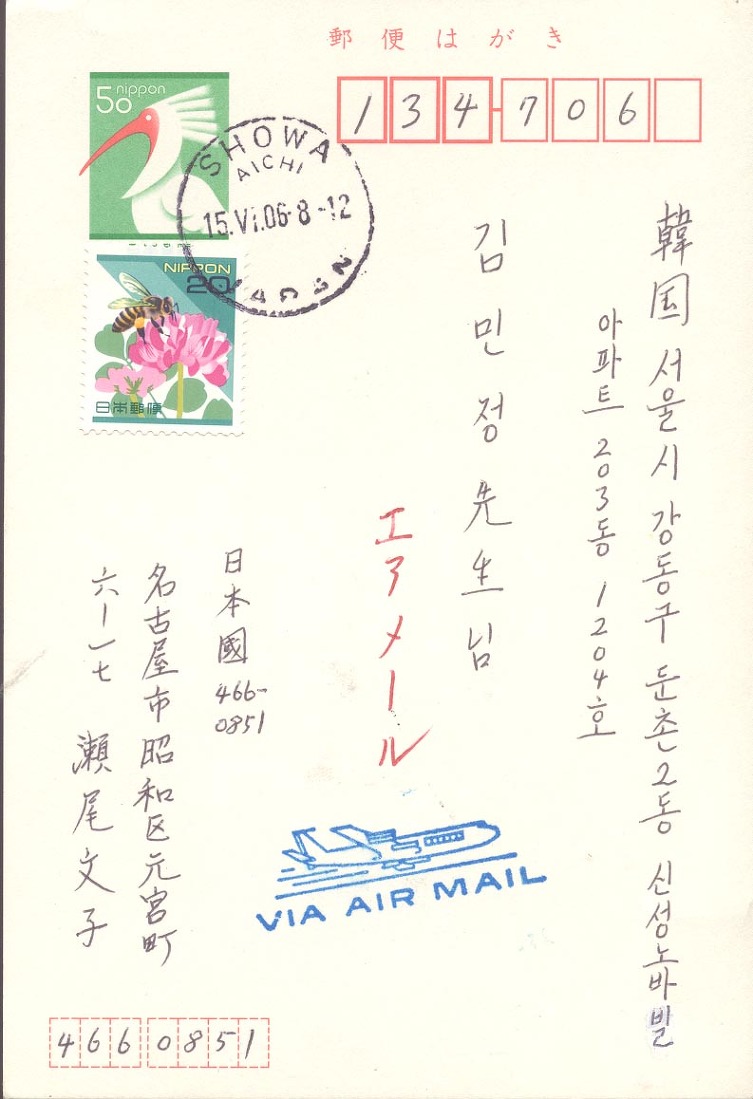 郵便はがき
50 nippon
134-706
SHOWA
AICHI
15.VI.06.8-12
JAPAN
NIPPON
20
日本郵便
韓国 서울시 강동구 둔촌2동 신성노바빌
아파트 203동 1204호
김민정先生님
エアメール
日本國 466-0851
名古屋市昭和区元宮町
六ー一七 瀬尾文子
VIA AIR MAIL
4660851